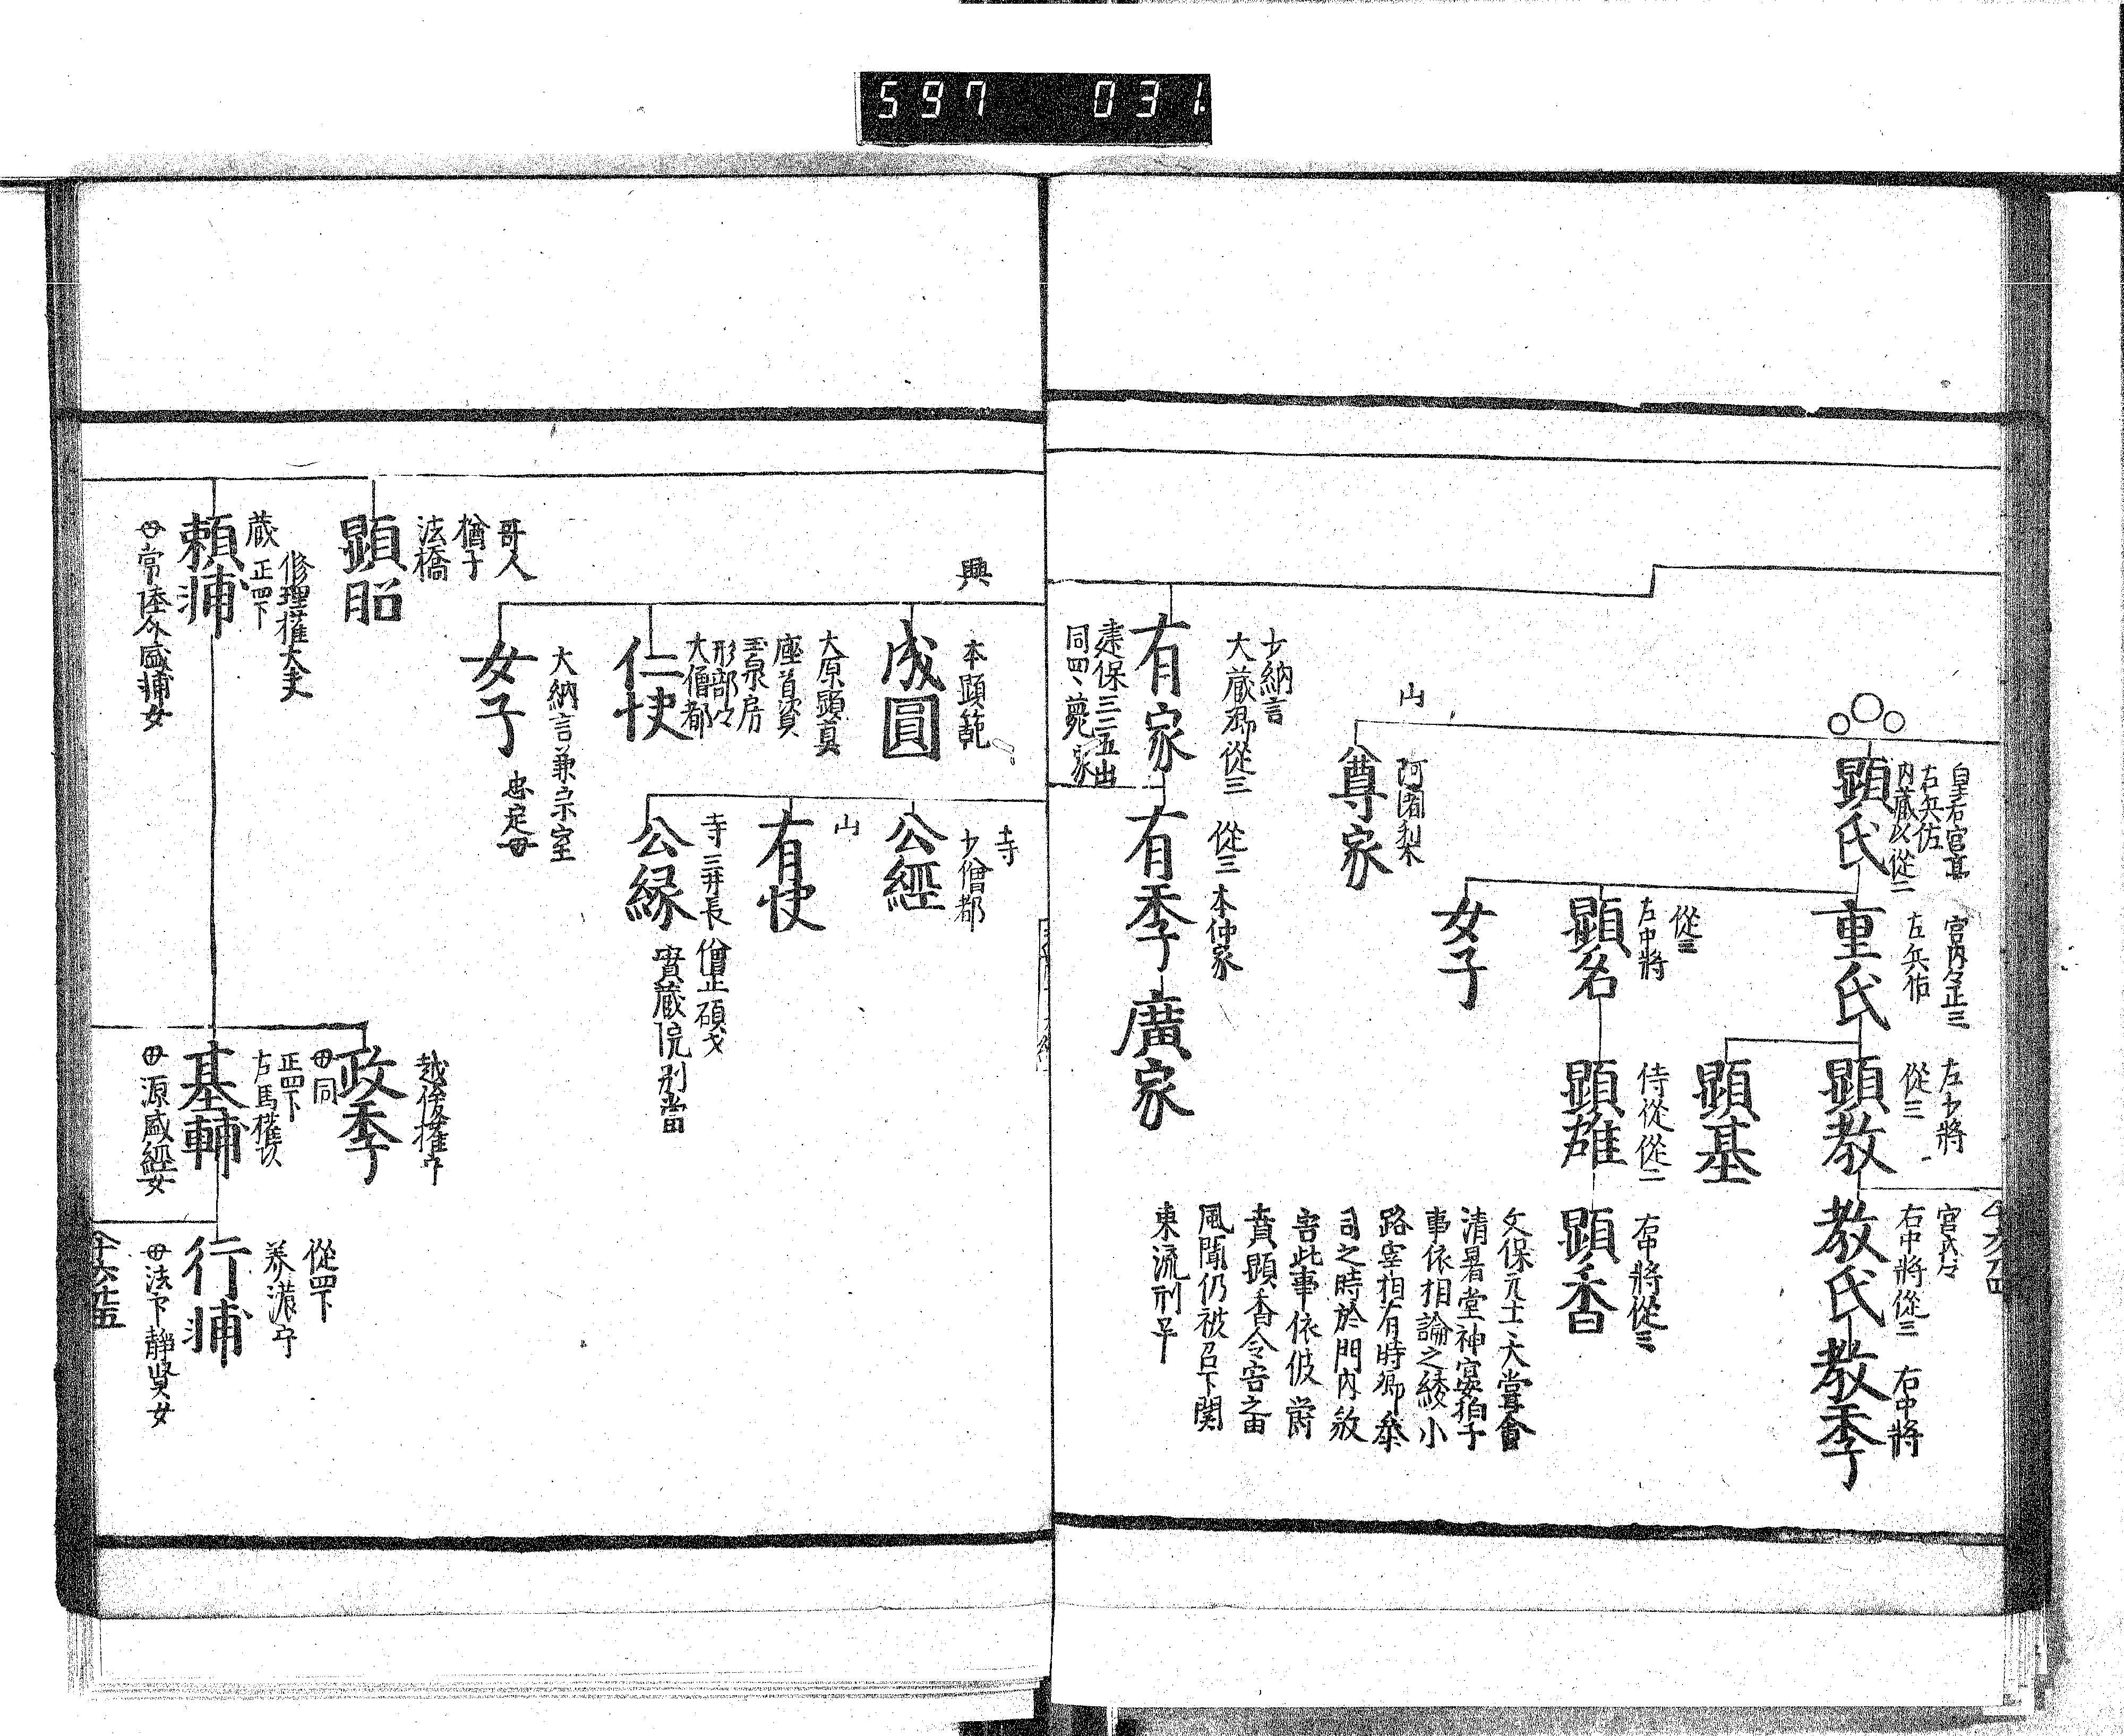 597 031
皇后宮亮
右兵佐
内蔵 從二
顕氏
宮内 正三
左兵佐
重氏
左少將
從三
顕教
宮内
右中將從三
教氏
右中將
教季
顕基
從三
左中將
顕名
侍從從二
顕雄
右中將從三
顕香
文保元十一大嘗會
清暑堂神宴拍子
事依相論之綾小
路宰相有時卿參
司之時於門内敘
害此事依彼嵜
責顕香令害之由
風聞仍被召下関
東流刑早
女子
山
阿闍梨
尊家
少納言
大蔵卿從三
有家
建保三二五出家
同四、薨
從三 本仲家
有季
廣家
興
本顕範
成圓
大原顕真
座首資
玉泉房
形部々
大僧都
仁快
大納言兼宗室
女子
忠定母
寺
少僧都
公經
山
有快
寺 三井長 僧正
公縁
實蔵院別當
哥人
猶子
法橋
顕昭
蔵 正四下
修理權大夫
頼輔
母常陸介盛輔女
越後權守
政季
母同
正四下
左馬權頭
基輔
母源盛經女
從四下
美濃守
行輔
母法下静賢女